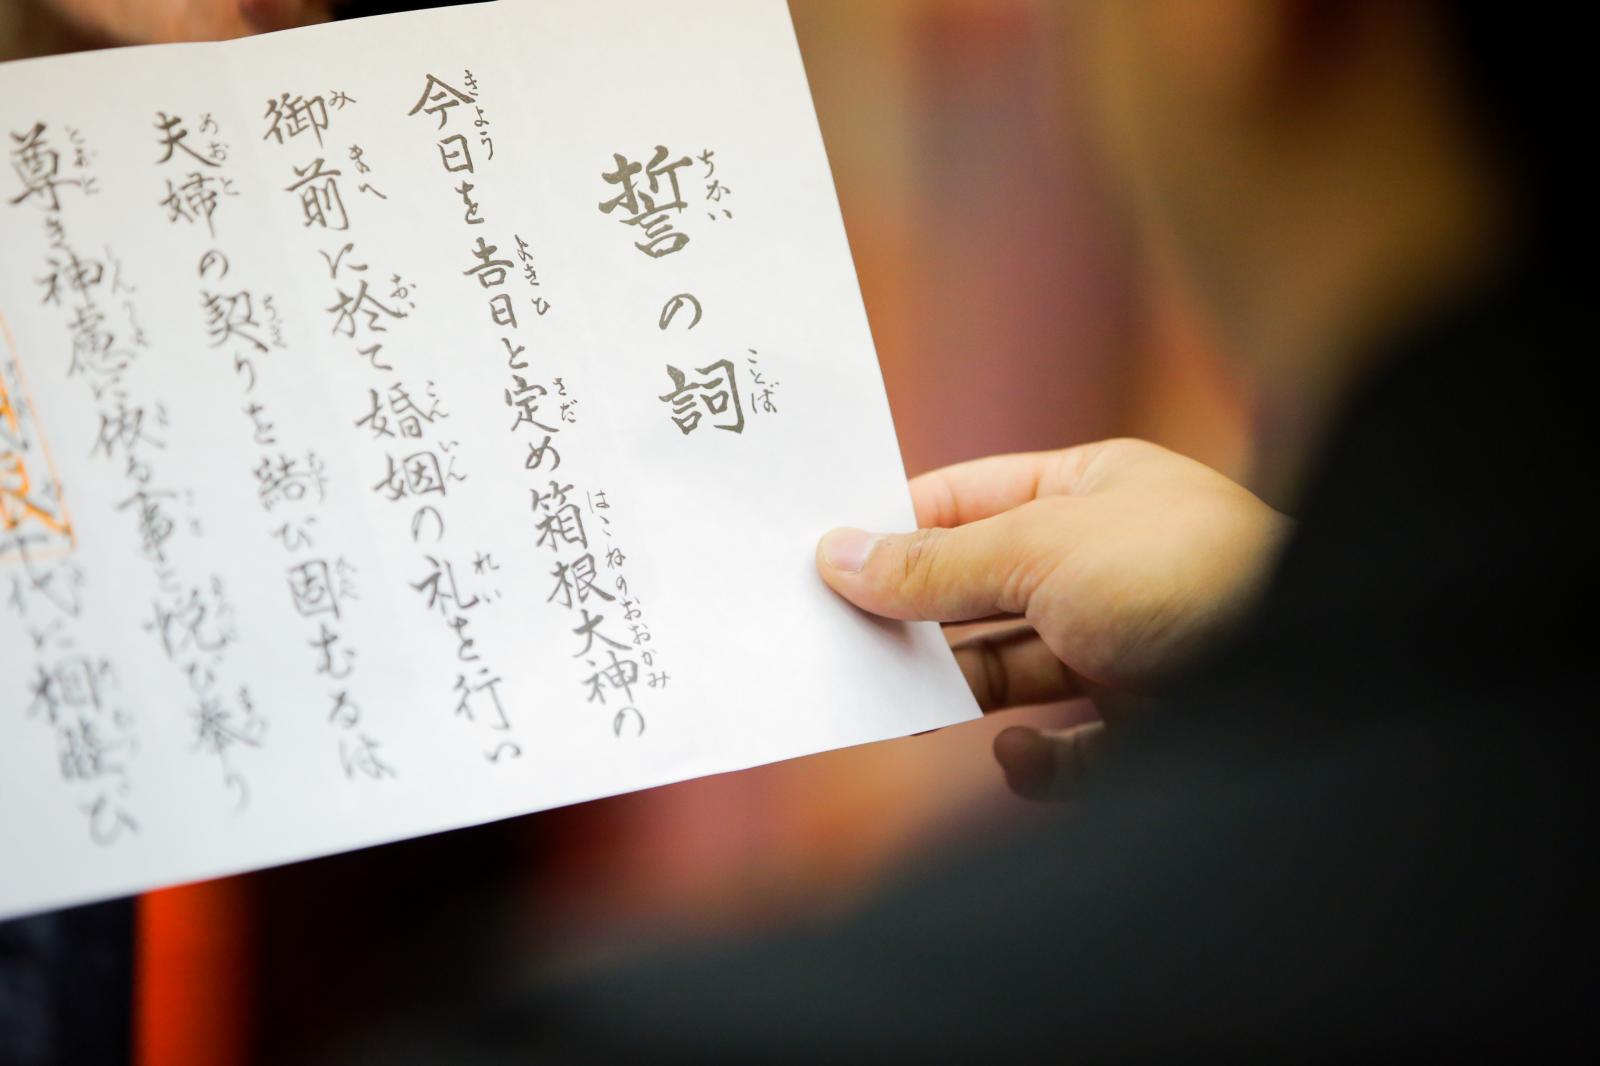 誓の詞
今日を吉日と定め箱根大神の
御前に於て婚姻の礼を行い
夫婦の契りを結び固むるは
尊き神慮に依る事と悦び奉り
千代に相睦び